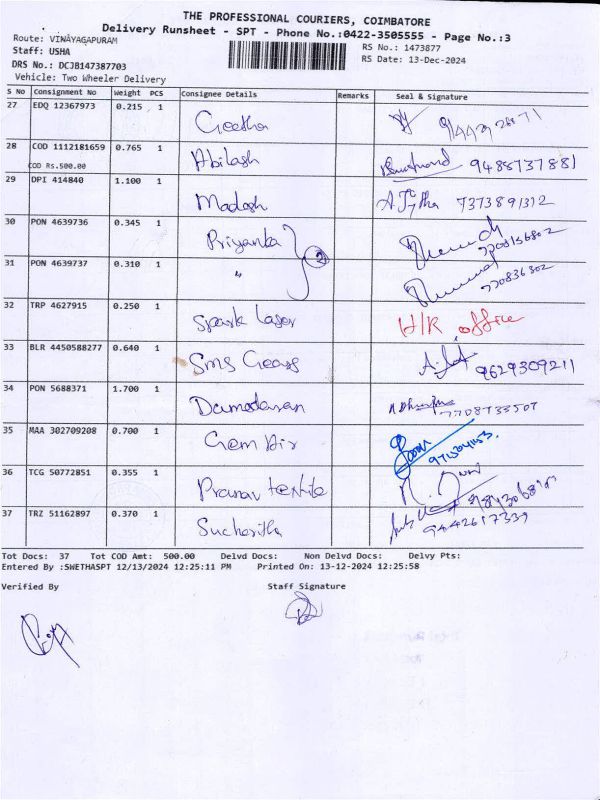 THE PROFESSIONAL COURIERS, COIMBATORE
Delivery Runsheet - SPT - Phone No.:0422-3505555 - Page No.:3
Route: VINAYAGAPURAM
RS No.: 1473877
Staff: USHA
RS Date: 13-Dec-2024
DRS No.: DCJB147387703
Vehicle: Two Wheeler Delivery
S No Consignment No Weight PCS Consignee Details Remarks Seal & Signature
27 EDQ 12367973 0.215 1 Geetha
28 COD 1112181659 0.765 1 Abilash 9488737881
COD Rs.500.00
29 DPI 414840 1.100 1 Madesh 7373891312
30 PON 4639736 0.345 1 Priyanka 2
31 PON 4639737 0.310 1 "
32 TRP 4627915 0.250 1 Spark Laser H/R office
33 BLR 4450588277 0.640 1 Sms Gears 9629309211
34 PON 5688371 1.700 1 Damodaran 7708733507
35 MAA 302709208 0.700 1 Gem Air
36 TCG 50772851 0.355 1 Pranav textile
37 TRZ 51162897 0.370 1 Suchoritha 9442617339
Tot Docs: 37 Tot COD Amt: 500.00 Delvd Docs: Non Delvd Docs: Delvy Pts:
Entered By :SWETHASPT 12/13/2024 12:25:11 PM Printed On: 13-12-2024 12:25:58
Verified By Staff Signature